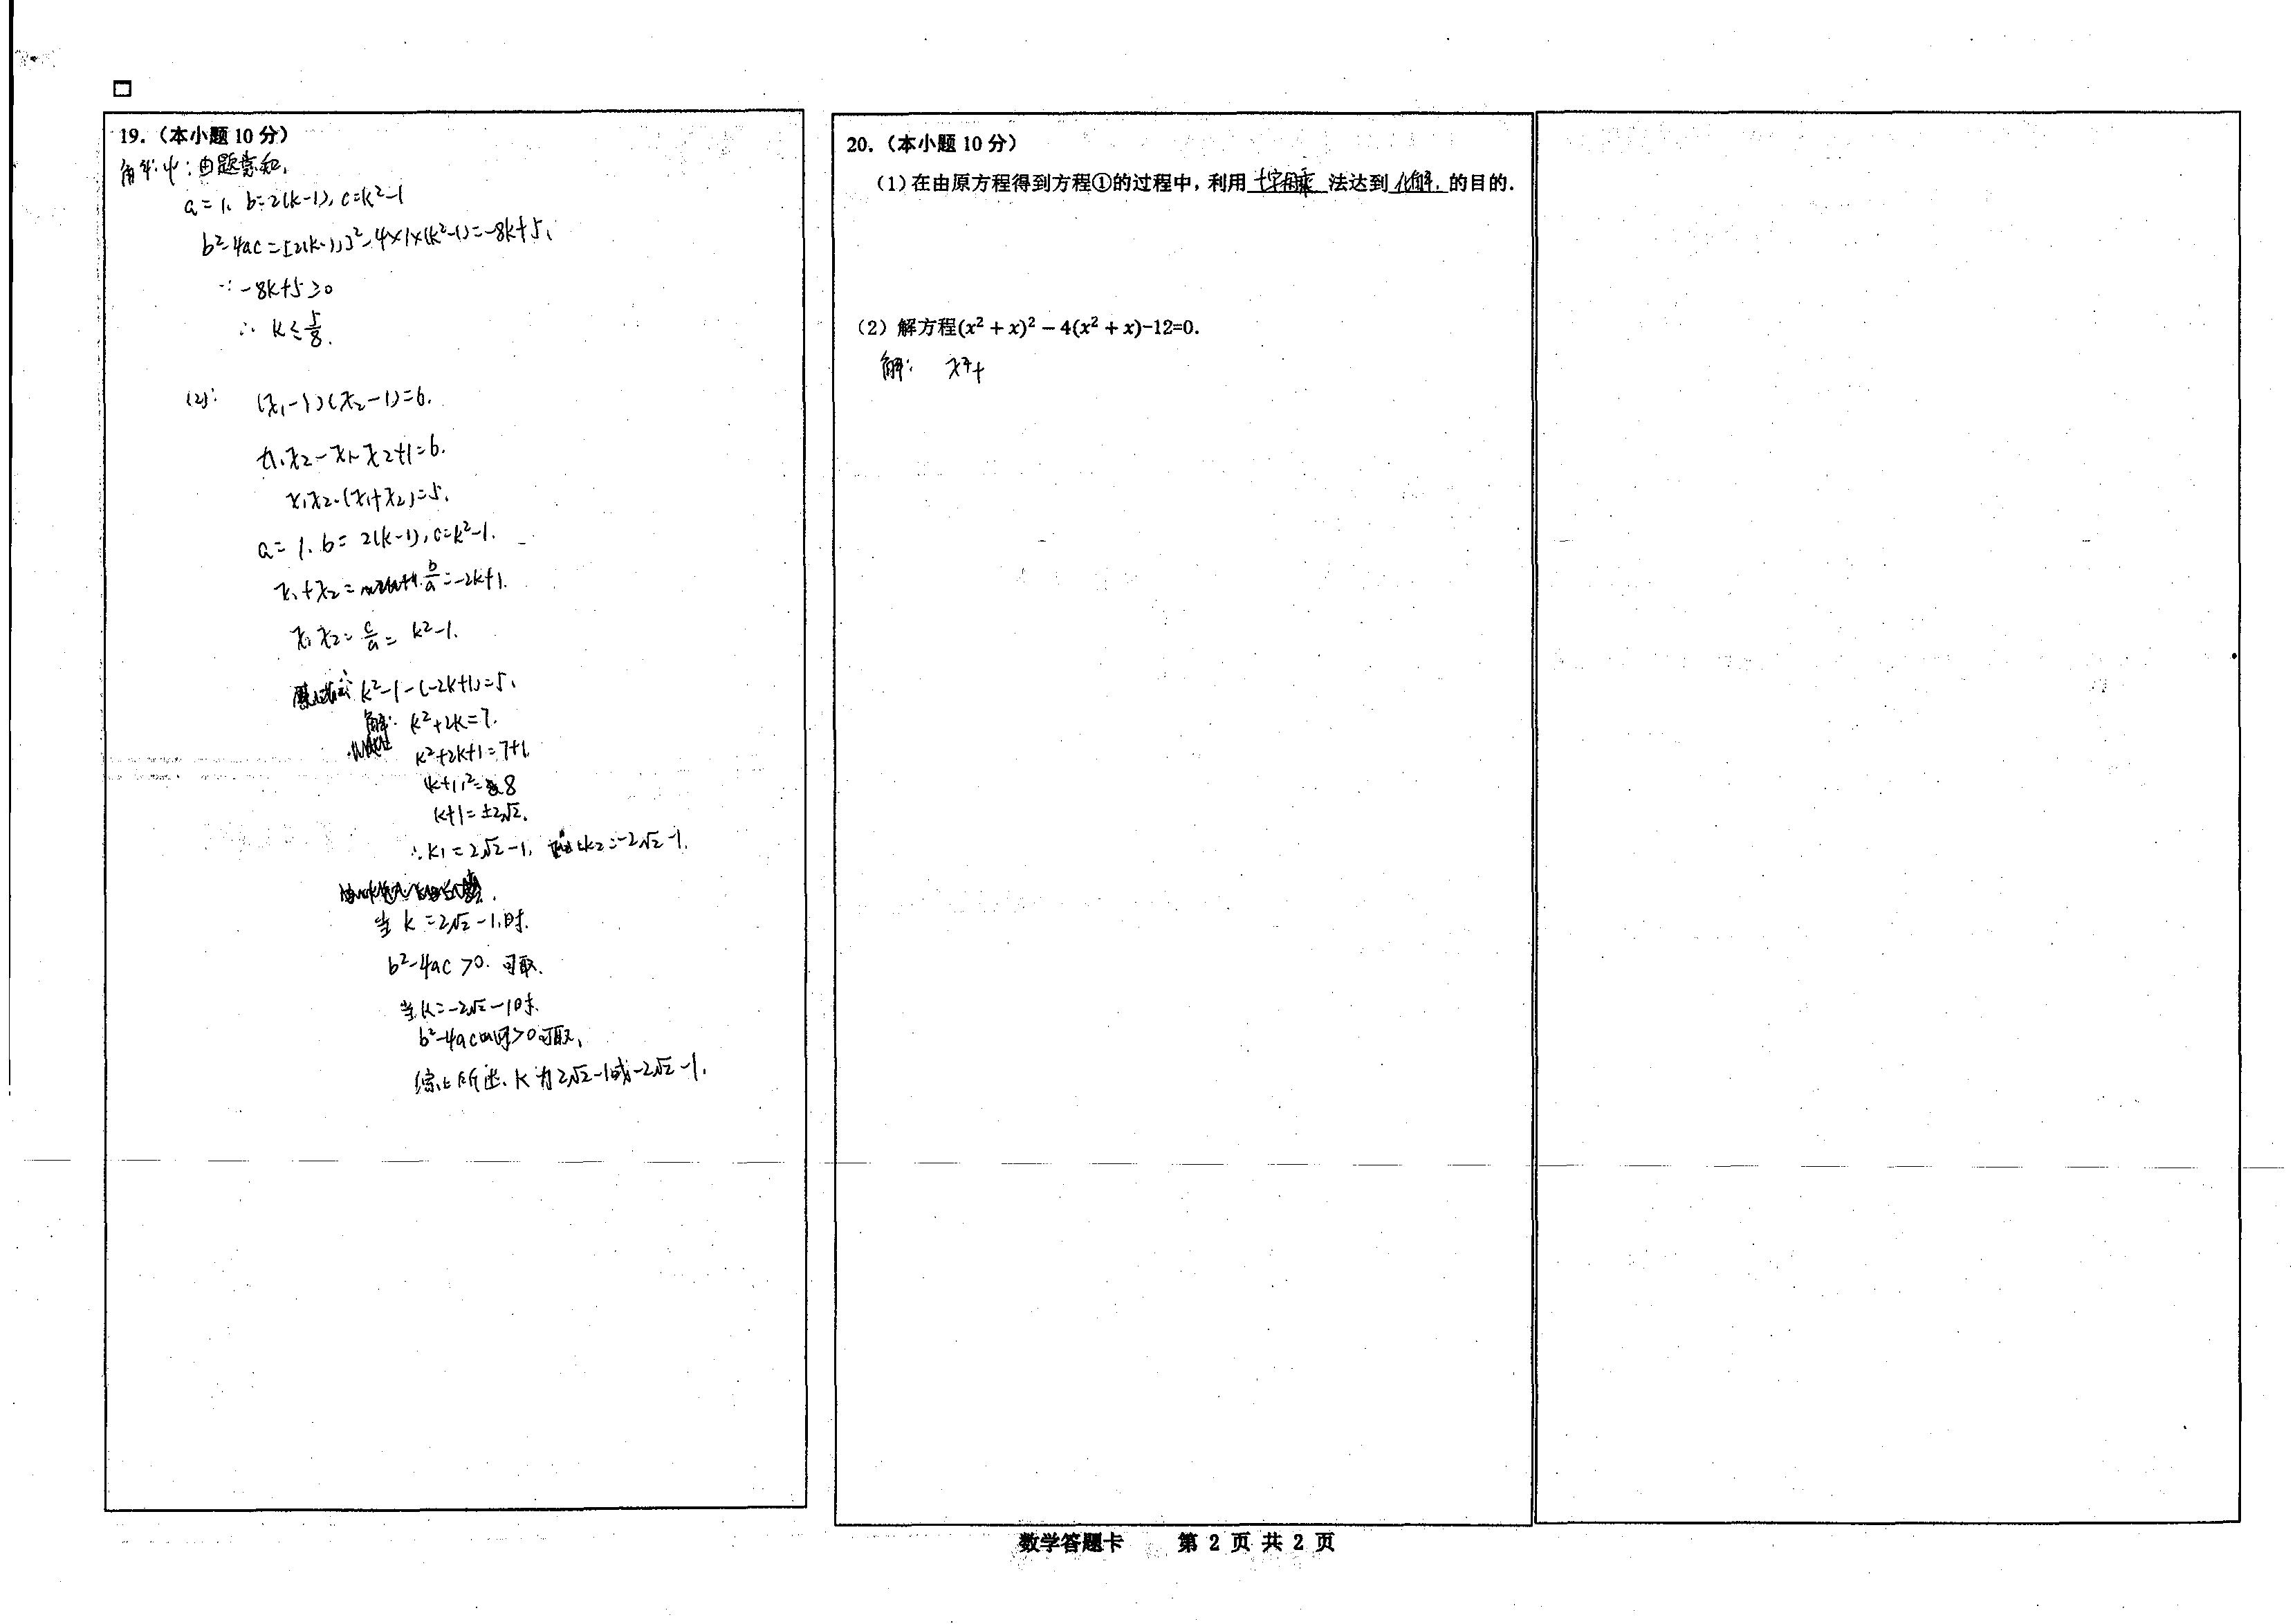 19.（本小题 10 分）
解:(1):由题意知,
a=1, b=2(k-1), c=k²-1
b²-4ac=[2(k-1)]²-4×1×(k²-1)=-8k+5,
∵-8k+5≥0
∴ k≤5/8.
(2): (x₁-1)(x₂-1)=6.
x₁x₂-x₁-x₂+1=6.
x₁x₂-(x₁+x₂)=5.
a=1, b=2(k-1), c=k²-1.
x₁+x₂= b/a=-2k+1.
x₁x₂=c/a= k²-1.
k²-1-(-2k+1)=5,
解: k²+2k=7.
k²+2k+1=7+1
(k+1)²=8
k+1=±2√2.
∴k₁=2√2-1, k₂=-2√2-1.
当 k=2√2-1时.
b²-4ac>0. 可取.
当k=-2√2-1时.
b²-4ac>0可取,
综上所述, k为2√2-1或-2√2-1.
20.（本小题 10 分）
（1）在由原方程得到方程①的过程中，利用 十字相乘 法达到 化解. 的目的.
（2）解方程(x² + x)² − 4(x² + x)-12=0.
解: x⁴+
数学答题卡 第 2 页 共 2 页